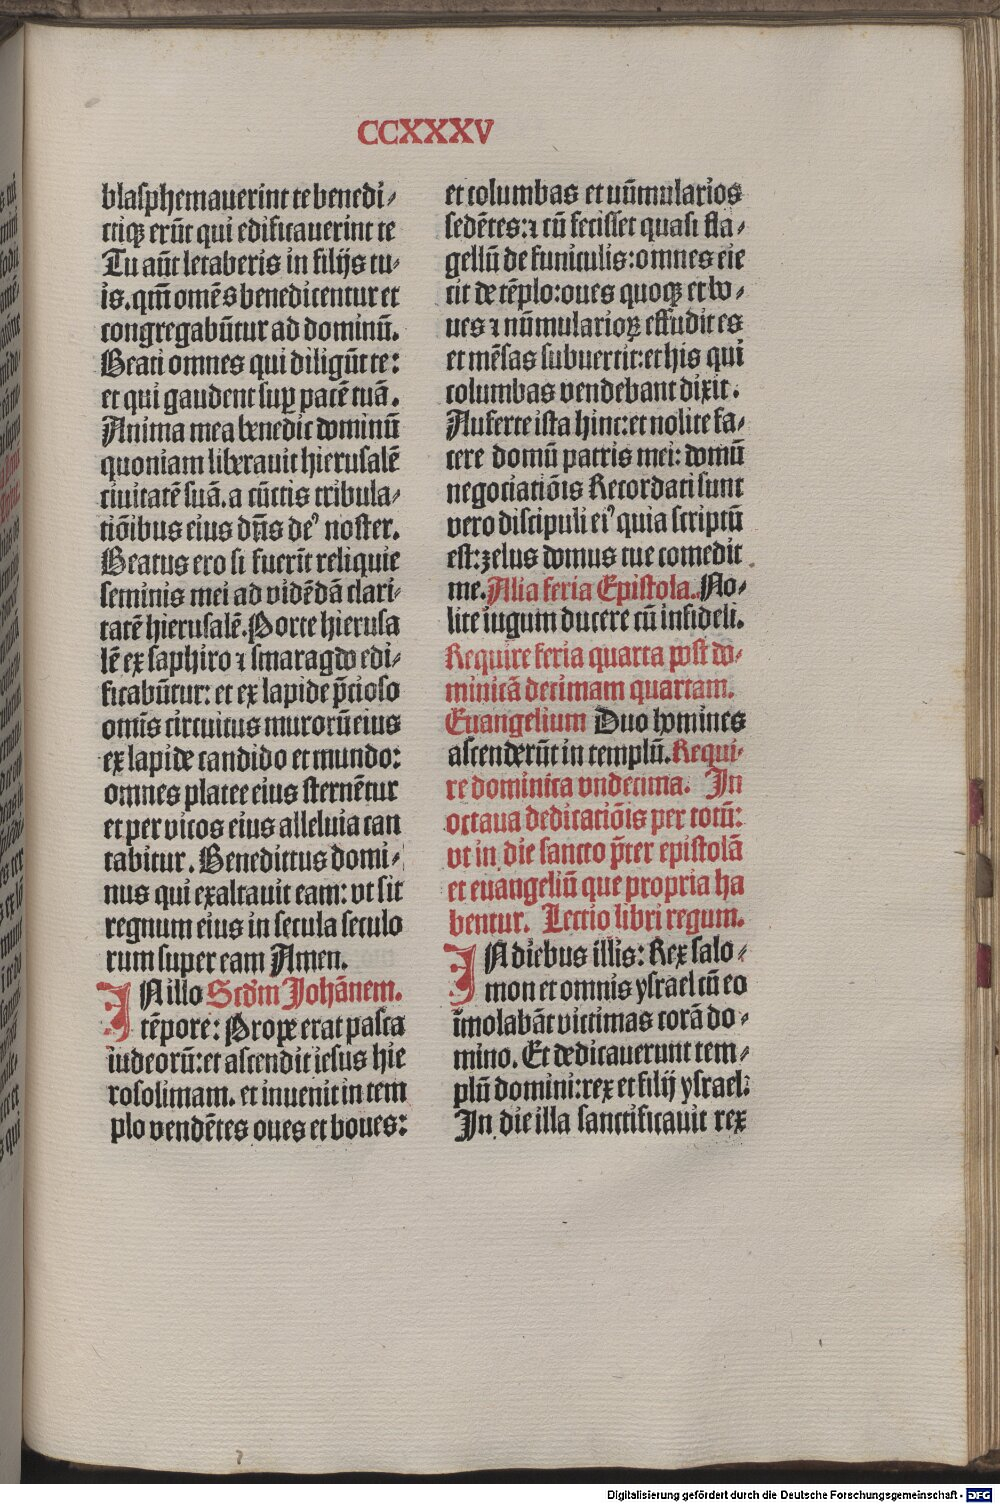 CCXXXV
blasphemauerint te benedi⸗
ctiqꝫ erūt qui edificauerint te
Tu aūt letaberis in filijs tu⸗
is. qm̄ omēs benedicentur et
congregabūtur ad dominū.
Beati omnes qui diligūt te:
et qui gaudent suꝑ pacē tuā.
Anima mea benedic dominū
quoniam liberauit hierusalē
ciuitatē suā. a cūctis tribula⸗
tiōibus eius dn̄s deꝰ noster.
Beatus ero si fuerīt reliquie
seminis mei ad vidēdā clari⸗
tatē hierusalē. Porte hierusa
lē ex saphiro ⁊ smaragdo edi⸗
ficabūtur: et ex lapide p̄cioso
omīs circuitus murorū eius
ex lapide candido et mundo:
omnes platee eius sternētur
et per vicos eius alleluia can
tabitur. Benedictus domi⸗
nus qui exaltauit eam: vt sit
regnum eius in secula seculo
rum super eam Amen.
IN illo Scd̄m Johānem.
tēpore: Prope erat pasca
iudeorū: et ascendit iesus hie
rosolimam. et inuenit in tem
plo vendētes oues et boues:
et columbas et nūmularios
sedētes: ⁊ cū fecisset quasi fla⸗
gellū de funiculis: omnes eie
cit de tēplo: oues quoqꝫ et bo⸗
ues ⁊ nūmularioꝝ effudit es
et mēsas subuertit: et his qui
columbas vendebant dixit.
Auferte ista hinc: et nolite fa⸗
cere domū patris mei: domū
negociatiōis Recordati sunt
vero discipuli eiꝰ quia scriptū
est: zelus domus tue comedit
me. Alia feria Epistola. No⸗
lite iugum ducere cū infideli.
Require feria quarta post do⸗
minicā decimam quartam.
Euangelium Duo homines
ascenderūt in templū. Requi⸗
re dominica vndecima. In
octaua dedicatiōis per totū:
vt in die sancto p̄ter epistolā
et euangeliū que propria ha
bentur. Lectio libri regum.
IN diebus illis: Rex salo⸗
mon et omnis ysrael cū eo
īmolabāt victimas corā do⸗
mino. Et dedicauerunt tem⸗
plū domini: rex et filij ysrael:
In die illa sanctificauit rex
Digitalisierung gefördert durch die Deutsche Forschungsgemeinschaft - DFG